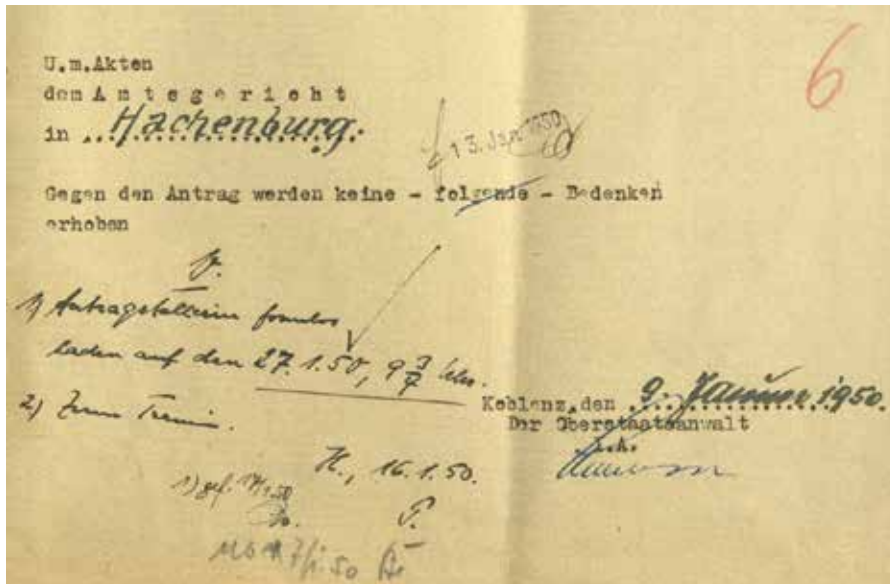 6
U.m.Akten
dem Amtsgericht
in ..Hachenburg.
13. Jan. 1950
Gegen den Antrag werden keine - folgende - Bedenken
erhoben
V.
1) Antragstellerin formlos
laden auf den 27.1.50, 9 Uhr.
2) Zum Termin.
Koblenz,den 9. Januar 1950.
Der Oberstaatsanwalt
I.A.
H., 16.1.50.
1) gef. 17/1.50